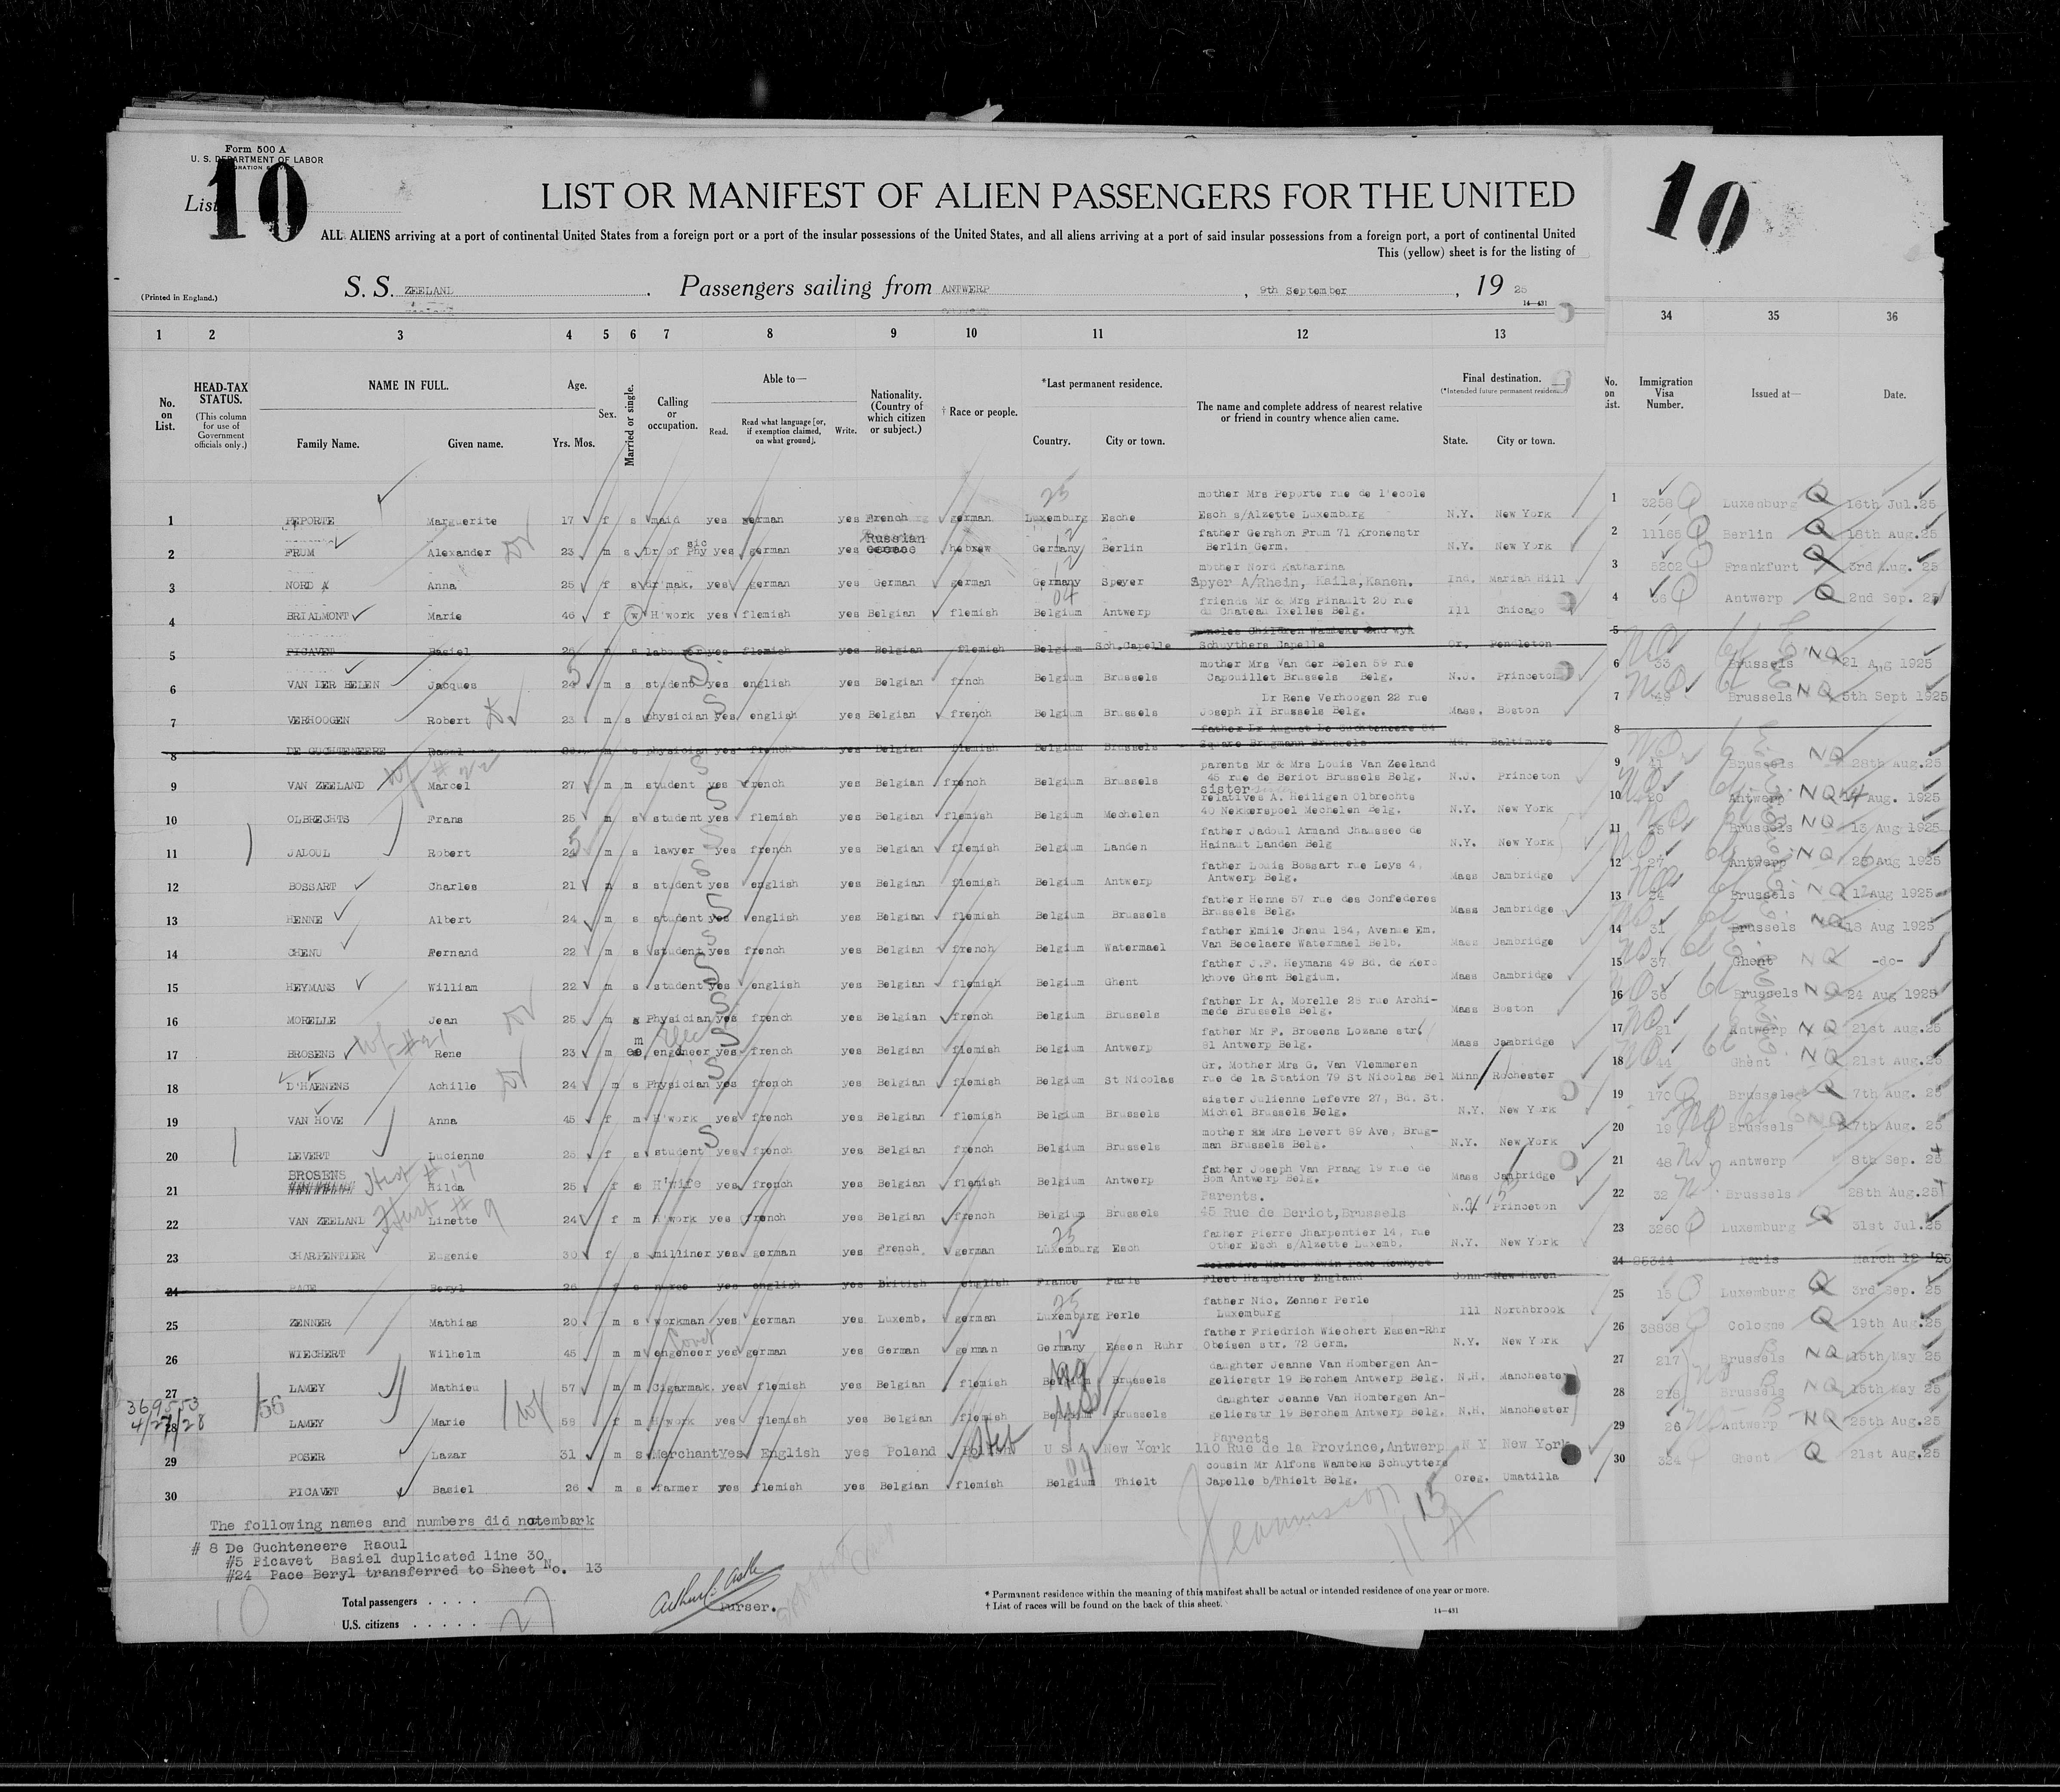 Form 500 A
U. S. DEPARTMENT OF LABOR
List 10
10
LIST OR MANIFEST OF ALIEN PASSENGERS FOR THE UNITED
ALL ALIENS arriving at a port of continental United States from a foreign port or a port of the insular possessions of the United States, and all aliens arriving at a port of said insular possessions from a foreign port, a port of continental United
This (yellow) sheet is for the listing of
(Printed in England.) S. S. ZEELAND . Passengers sailing from ANTWERP , 9th September , 19 25
14—431
1 2 3 4 5 6 7 8 9 10 11 12 13 34 35 36
No. on List. HEAD-TAX STATUS. (This column for use of Government officials only.) NAME IN FULL. Family Name. Given name. Age. Yrs. Mos. Sex. Married or single. Calling or occupation. Able to— Read. Read what language [or, if exemption claimed, on what ground]. Write. Nationality. (Country of which citizen or subject.) † Race or people. *Last permanent residence. Country. City or town. The name and complete address of nearest relative or friend in country whence alien came. Final destination. (*Intended future permanent residence.) State. City or town. No. on List. Immigration Visa Number. Issued at— Date.
mother Mrs Peporte rue de l'ecole
1 PEPORTE Marguerite 17 f s maid yes german yes French german Luxemburg Esche Esch s/Alzette Luxemburg N.Y. New York 1 3258 Luxenburg Q 16th Jul.25
father Gershon Frum 71 Kronenstr
2 FRUM Alexander 23 m s Dr of Phy sic yes german yes Russian hebrew Germany Berlin Berlin Germ. N.Y. New York 2 11165 Berlin Q 18th Aug.25
mother Nord Katharina
3 NORD Anna 25 f s dr'mak. yes german yes German german Germany Speyer Spyer A/Rhein, Haila,Kanen. Ind. Mariah Hill 3 5202 Frankfurt Q 3rd Aug. 25
friends Mr & Mrs Pinault 20 rue
4 BRIALMONT Marie 46 f w H'work yes flemish yes Belgian flemish Belgium Antwerp de Chateau Ixelles Belg. Ill Chicago 4 Antwerp Q 2nd Sep. 25
5 PICAVET Basiel 26 m s labourer yes flemish yes Belgian flemish Belgium Sch.Capelle Schuythers Capelle Or. Pendleton 5
mother Mrs Van der Belen 59 rue
6 VAN DER BELEN Jacques 24 m s student yes english yes Belgian frnch Belgium Brussels Capouillet Brussels Belg. N.J. Princeton 6 33 Brussels NQ 21 Aug 1925
Dr Rene Verhoogen 22 rue
7 VERHOOGEN Robert 23 m s physician yes english yes Belgian french Belgium Brussels Joseph II Brussels Belg. Mass. Boston 7 49 Brussels NQ 5th Sept 1925
father Dr August De Guchteneere 84
8 DE GUCHTENEERE Raoul m s physician yes french yes Belgian flemish Belgium Brussels Square Brugmann Brussels Md. Baltimore 8
parents Mr & Mrs Louis Van Zeeland
9 VAN ZEELAND Wf # 22 Marcel 27 m m student yes french yes Belgian french Belgium Brussels 45 rue de Beriot Brussels Belg. N.J. Princeton 9 Brussels NQ 28th Aug.25
sister
relatives A. Heiligen Olbrechts
10 OLBRECHTS Frans 25 m s student yes flemish yes Belgian flemish Belgium Mechelen 40 Nekkerspoel Mechelen Belg. N.Y. New York 10 20 Antwerp NQ 14 Aug. 1925
father Jadoul Armand Chaussee de
11 JADOUL Robert 24 m s lawyer yes french yes Belgian flemish Belgium Landen Hainaut Landen Belg N.Y. New York 11 Brussels NQ 13 Aug 1925
father Louis Bossart rue Leys 4.
12 BOSSART Charles 21 m s student yes english yes Belgian flemish Belgium Antwerp Antwerp Belg. Mass Cambridge 12 27 Antwerp NQ Aug 1925
father Henne 57 rue des Confederes
13 HENNE Albert 24 m s student yes english yes Belgian flemish Belgium Brussels Brussels Belg. Mass Cambridge 13 24 Brussels NQ 12 Aug 1925
father Emile Chenu 184, Avenue Em.
14 CHENU Fernand 22 m s student yes french yes Belgian french Belgium Watermael Van Becelaere Watermael Belb. Mass Cambridge 14 31 Brussels NQ 18 Aug 1925
father J.F. Heymans 49 Bd. de Kerc
15 HEYMANS William 22 m s student yes english yes Belgian flemish Belgium Ghent khove Ghent Belgium. Mass Cambridge 15 37 Ghent NQ -do-
father Dr A. Morelle 28 rue Archi-
16 MORELLE Jean 25 m s Physician yes french yes Belgian french Belgium Brussels mede Brussels Belg. Mass Boston 16 36 Brussels NQ 24 Aug 1925
father Mr F. Brosens Lozane str.
17 BROSENS Wf #21 Rene 23 m m Elec engineer yes french yes Belgian flemish Belgium Antwerp 81 Antwerp Belg. Mass Cambridge 17 21 Antwerp NQ 21st Aug.25
Gr. Mother Mrs G. Van Vlemmeren
18 D'HAENENS Achille 24 m s Physician yes french yes Belgian flemish Belgium St Nicolas rue de la Station 79 St Nicolas Bel Minn Rochester 18 44 Ghent NQ 21st Aug.25
sister Julienne Lefevre 27, Bd. St.
19 VAN HOVE Anna 45 f m H'work yes french yes Belgian flemish Belgium Brussels Michel Brussels Belg. N.Y. New York 19 170 Brussels Q 7th Aug. 25
mother Mrs Levert 89 Ave, Brug-
20 LEVERT Lucienne 25 f s student yes french yes Belgian french Belgium Brussels man Brussels Belg. N.Y. New York 20 19 Brussels NQ 7th Aug. 25
father Joseph Van Praag 19 rue de
21 BROSENS Hust # 17 Hilda 25 f H'wife yes french yes Belgian flemish Belgium Antwerp Bom Antwerp Belg. Mass Cambridge 21 48 Antwerp 8th Sep. 25
Parents.
22 VAN ZEELAND Hust # 9 Linette 24 f m H'work yes french yes Belgian french Belgium Brussels 45 Rue de Beriot,Brussels N.J. Princeton 22 32 Brussels 28th Aug.25
father Pierre Charpentier 14, rue
23 CHARPENTIER Eugenie 30 f s milliner yes german yes French german Luxemburg Esch Other Esch s/Alzette Luxemb. N.Y. New York 23 3260 Luxemburg Q 31st Jul.25
24 PACE Beryl 26 f s nurse yes english yes British english France Paris Fleet Hampshire England Conn New Haven 24 95344 Paris March 12 '25
father Nic. Zenner Perle
25 ZENNER Mathias 20 m s workman yes german yes Luxemb. german Luxemburg Perle Luxemburg Ill Northbrook 25 15 Luxemburg Q 3rd Sep. 25
father Friedrich Wiechert Essen-Rhr
26 WIECHERT Wilhelm 45 m m engeneer yes german yes German german Germany Essen Ruhr Obeisen str. 72 Germ. N.Y. New York 26 38838 Cologne Q 19th Aug.25
daughter Jeanne Van Hombergen An-
27 LAMEY Mathieu 57 m m Cigarmak. yes flemish yes Belgian flemish Belgium Brussels gelierstr 19 Berchem Antwerp Belg. N.H. Manchester 27 217 Brussels NQ 15th May 25
369553
4/27/28
56
daughter Jeanne Van Hombergen An-
28 LAMEY Marie Wf 58 f m H'work yes flemish yes Belgian flemish Belgium Brussels gelierstr 19 Berchem Antwerp Belg. N.H. Manchester 28 218 Brussels NQ 15th May 25
Parents
29 POSER Lazar 31 m s Merchant Yes English yes Poland U S A New York 110 Rue de la Province,Antwerp N Y New York 29 26 Antwerp NQ 25th Aug.25
cousin Mr Alfons Wambeke Schuytters
30 PICAVET Basiel 26 m s farmer yes flemish yes Belgian flemish Belgium Thielt Capelle b/Thielt Belg. Oreg. Umatilla 30 324 Ghent Q 21st Aug.25
The following names and numbers did notembark
# 8 De Guchteneere Raoul
#5 Picavet Basiel duplicated line 30
#24 Pace Beryl transferred to Sheet No. 13
Total passengers . . . .
U.S. citizens . . . . .
10
27
Purser.
* Permanent residence within the meaning of this manifest shall be actual or intended residence of one year or more.
† List of races will be found on the back of this sheet.
14—431